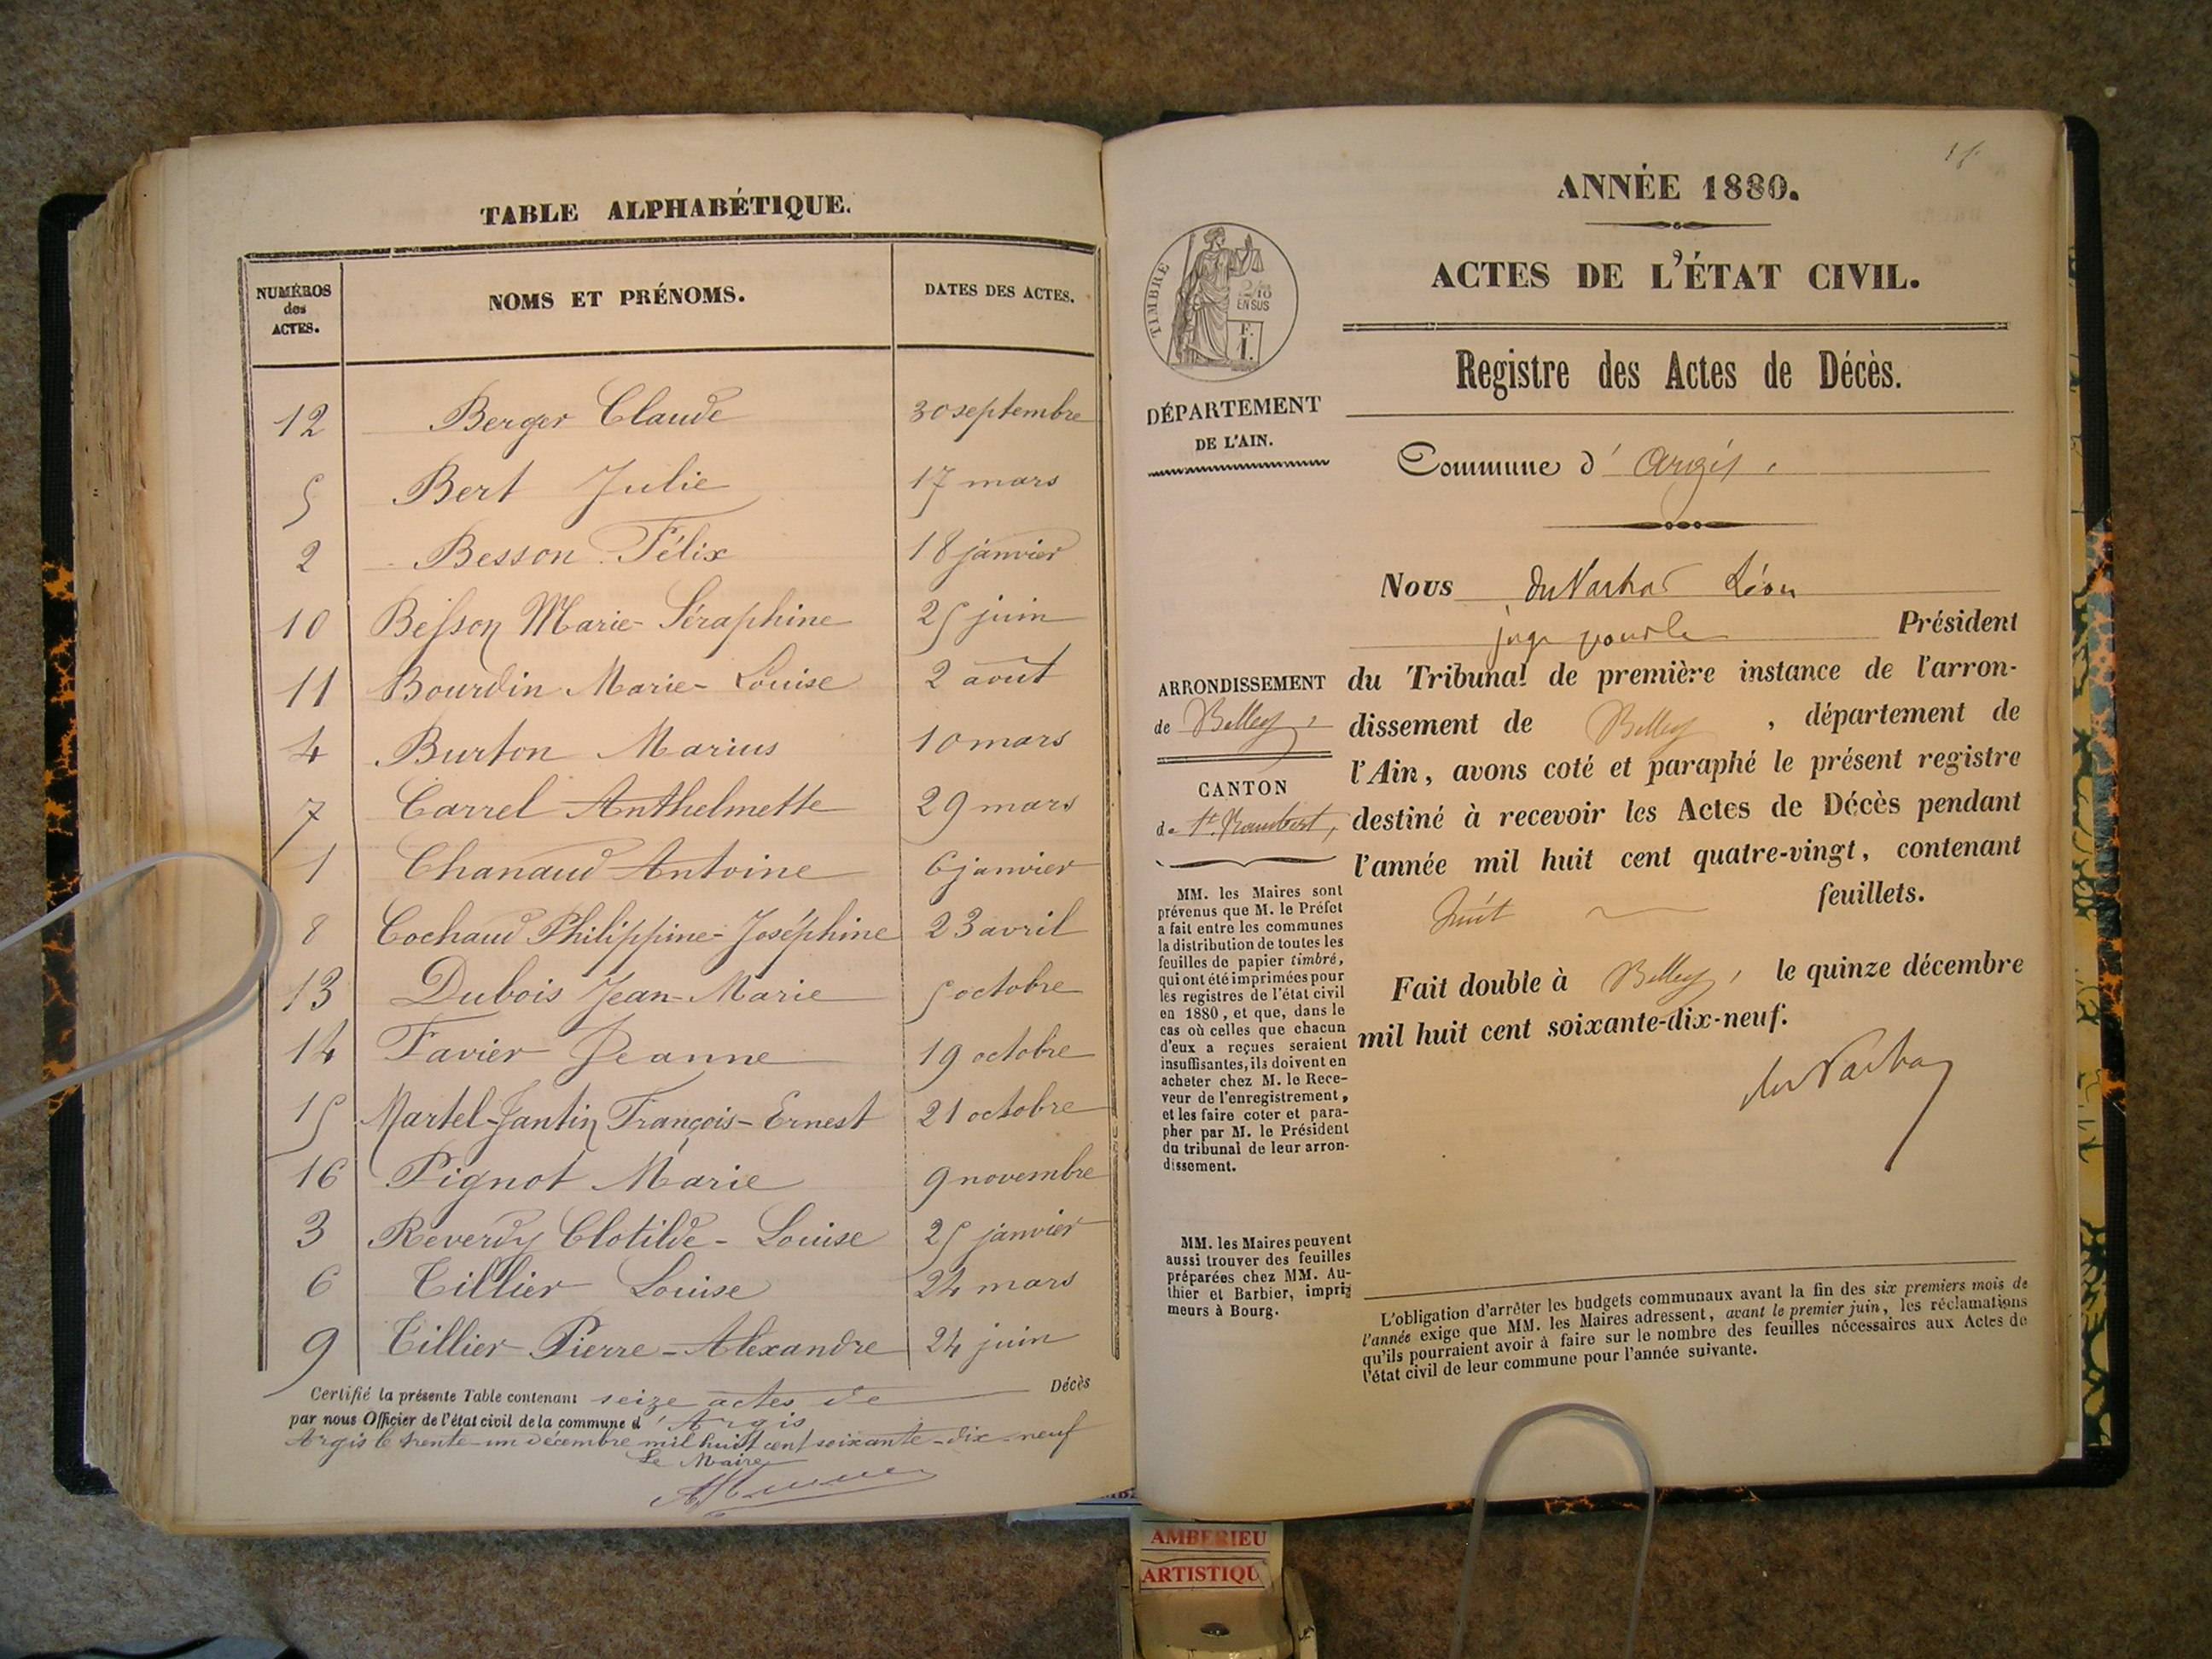 TABLE ALPHABÉTIQUE.
NUMÉROS
des
ACTES.
NOMS ET PRÉNOMS.
DATES DES ACTES.
12 Berger Claude 30 septembre
5 Bert Julie 17 mars
2 Besson Félix 18 janvier
10 Besson Marie-Séraphine 25 juin
11 Bourdin Marie-Louise 2 août
4 Burton Marius 10 mars
7 Carrel Anthelmette 29 mars
1 Chanaud Antoine 6 janvier
8 Cochaud Philippine-Joséphine 23 avril
13 Dubois Jean-Marie 5 octobre
14 Favier Jeanne 19 octobre
15 Martel-Jantin François-Ernest 21 octobre
16 Pignot Marie 9 novembre
3 Reverdy Clotilde-Louise 25 janvier
6 Tillier Louise 24 mars
9 Tillier Pierre-Alexandre 24 juin
Certifié la présente Table contenant seize actes de Décès
par nous Officier de l'état civil de la commune d'Argis
Argis le trente-un décembre mil huit cent soixante-dix-neuf
Le Maire
ANNÉE 1880.
ACTES DE L'ÉTAT CIVIL.
Registre des Actes de Décès.
TIMBRE
2/10
EN SUS
F.
1.
DÉPARTEMENT
DE L'AIN.
Commune d'Argis.
Nous Léon
juge pour le Président
du Tribunal de première instance de l'arron-
dissement de Belley, département de
l'Ain, avons coté et paraphé le présent registre
destiné à recevoir les Actes de Décès pendant
l'année mil huit cent quatre-vingt, contenant
huit feuillets.
Fait double à Belley, le quinze décembre
mil huit cent soixante-dix-neuf.
ARRONDISSEMENT
de Belley,
CANTON
de St. Rambert,
MM. les Maires sont
prévenus que M. le Préfet
a fait entre les communes
la distribution de toutes les
feuilles de papier timbré,
qui ont été imprimées pour
les registres de l'état civil
en 1880, et que, dans le
cas où celles que chacun
d'eux a reçues seraient
insuffisantes, ils doivent en
acheter chez M. le Rece-
veur de l'enregistrement,
et les faire coter et para-
pher par M. le Président
du tribunal de leur arron-
dissement.
MM. les Maires peuvent
aussi trouver des feuilles
préparées chez MM. Au-
thier et Barbier, impri-
meurs à Bourg.
L'obligation d'arrêter les budgets communaux avant la fin des six premiers mois de
l'année exige que MM. les Maires adressent, avant le premier juin, les réclamations
qu'ils pourraient avoir à faire sur le nombre des feuilles nécessaires aux Actes de
l'état civil de leur commune pour l'année suivante.
AMBERIEU
ARTISTIQU